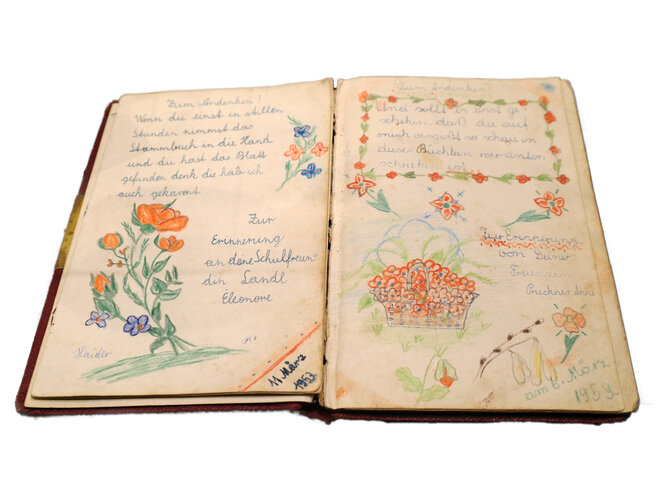 Zum Andenken!
Wenn du einst in stillen
Stunden nimmst das
Stammbuch in die Hand
und du hast das Blatt
gefunden denk die hab ich
auch gekannt
Zur
Erinnerung
an deine Schulfreun
din Landl
Eleonore
Haider
11 März
1953
Zum Andenken!
Und sollt es einst ge-
schehen, daß du auf
mich vergißt so schau in
dieses Büchlein wer
schrieben ist.
Zur Erinnerung
von Deiner
Freundin
Pruckner Anne
am 6. März
1953.